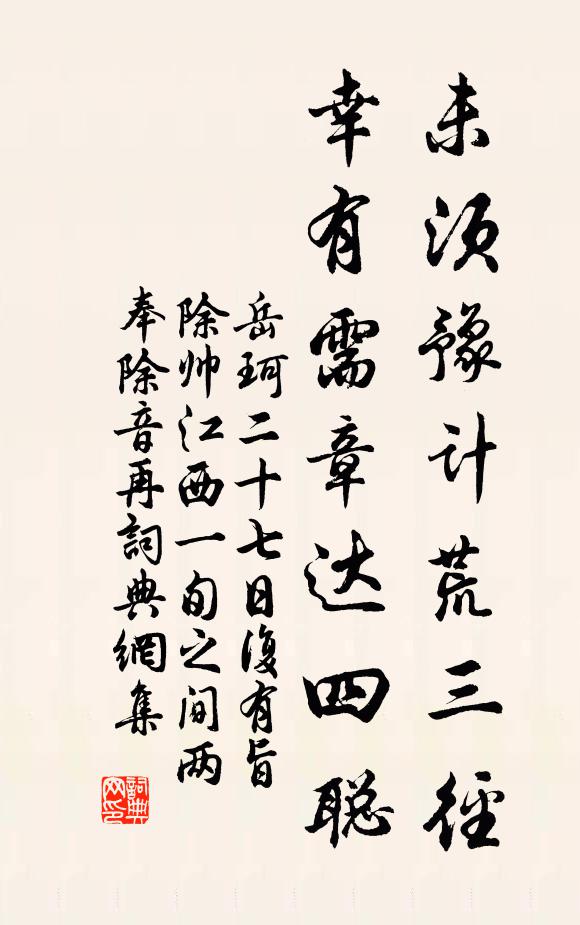 未须豫计荒三径
幸有需章达四聪
岳珂二十七日復有旨
除帅江西一旬之间两
奉除音再詞典網集
詞典
网印